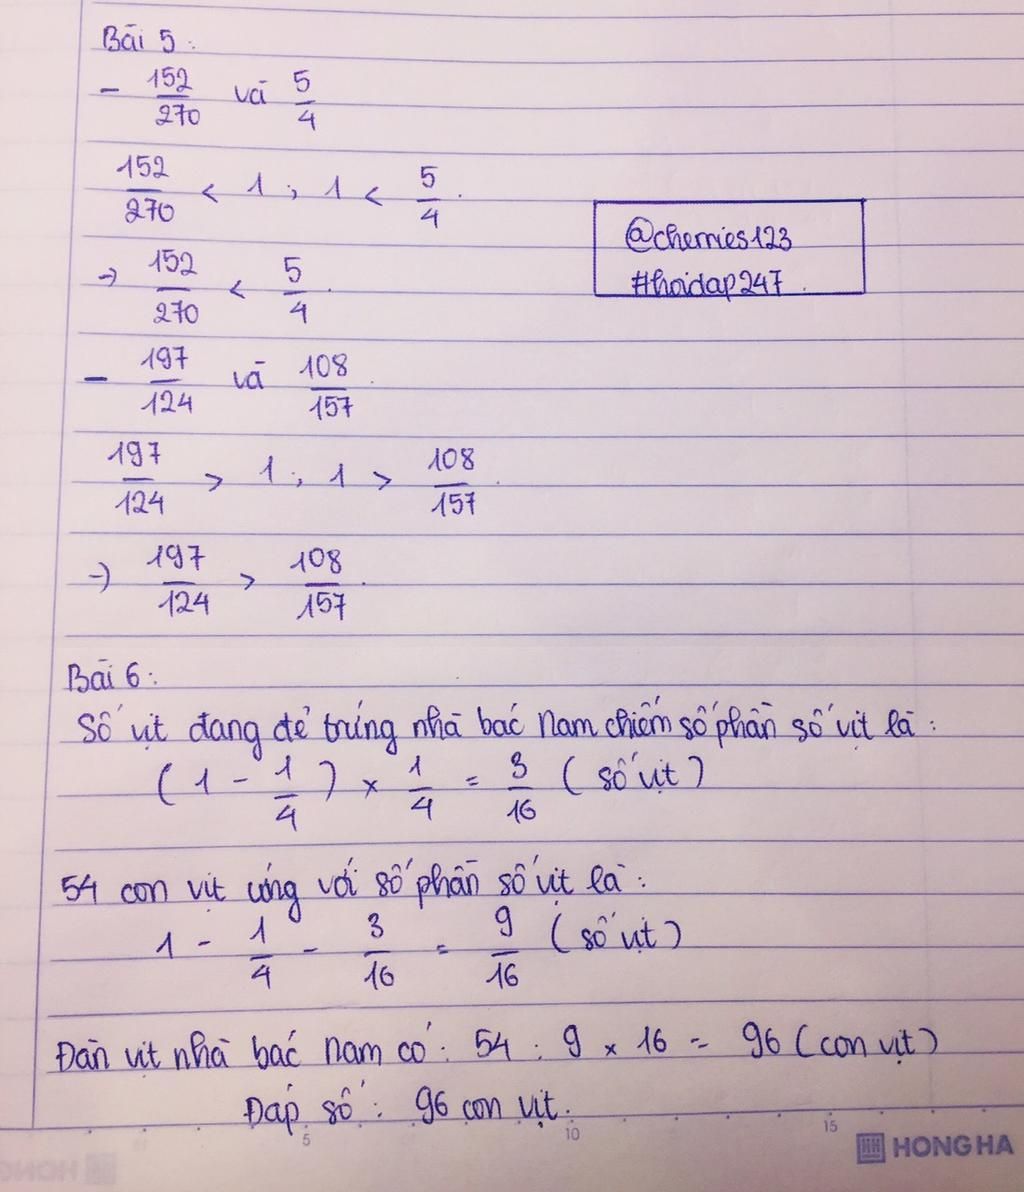 Bài 5:
- 152/270 và 5/4
152/270 < 1 ; 1 < 5/4.
→ 152/270 < 5/4.
@cherries123
#hoidap247.
- 197/124 và 108/157.
197/124 > 1 ; 1 > 108/157.
→ 197/124 > 108/157.
Bài 6:
Số vịt đang đẻ trứng nhà bác Nam chiếm số phần số vịt là:
(1 - 1/4) × 1/4 = 3/16 (số vịt)
54 con vịt ứng với số phần số vịt là:
1 - 1/4 - 3/16 = 9/16 (số vịt)
Đàn vịt nhà bác Nam có: 54 : 9 × 16 = 96 (con vịt)
Đáp số: 96 con vịt.
5 10 15
HONG HA